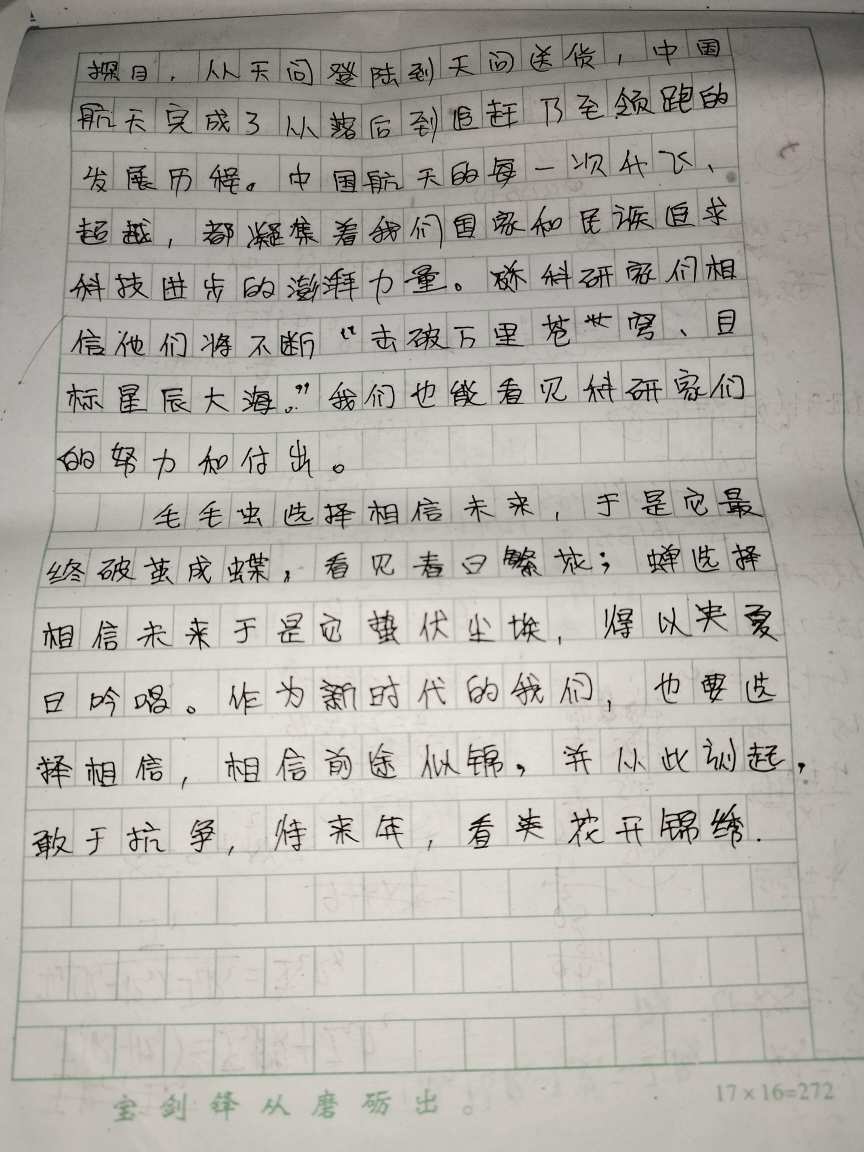 探月，从天问登陆到天问送货，中国
航天完成了从落后到追赶乃至领跑的
发展历程。中国航天的每一次升飞、
超越，都凝集着我们国家和民族追求
科技进步的澎湃力量。科研家们相
信他们将不断“击破万里苍艹穹、目
标星辰大海。”我们也能看见科研家们
的努力和付出。
毛毛虫选择相信未来，于是它最
终破茧成蝶，看见春日繁花；蝉选择
相信未来于是它蛰伏尘埃，得以夹夏
日吟唱。作为新时代的我们，也要选
择相信，相信前途似锦，并从此刻起，
敢于抗争，待来年，看夹花开锦绣.
宝剑锋从磨砺出。
17×16=272